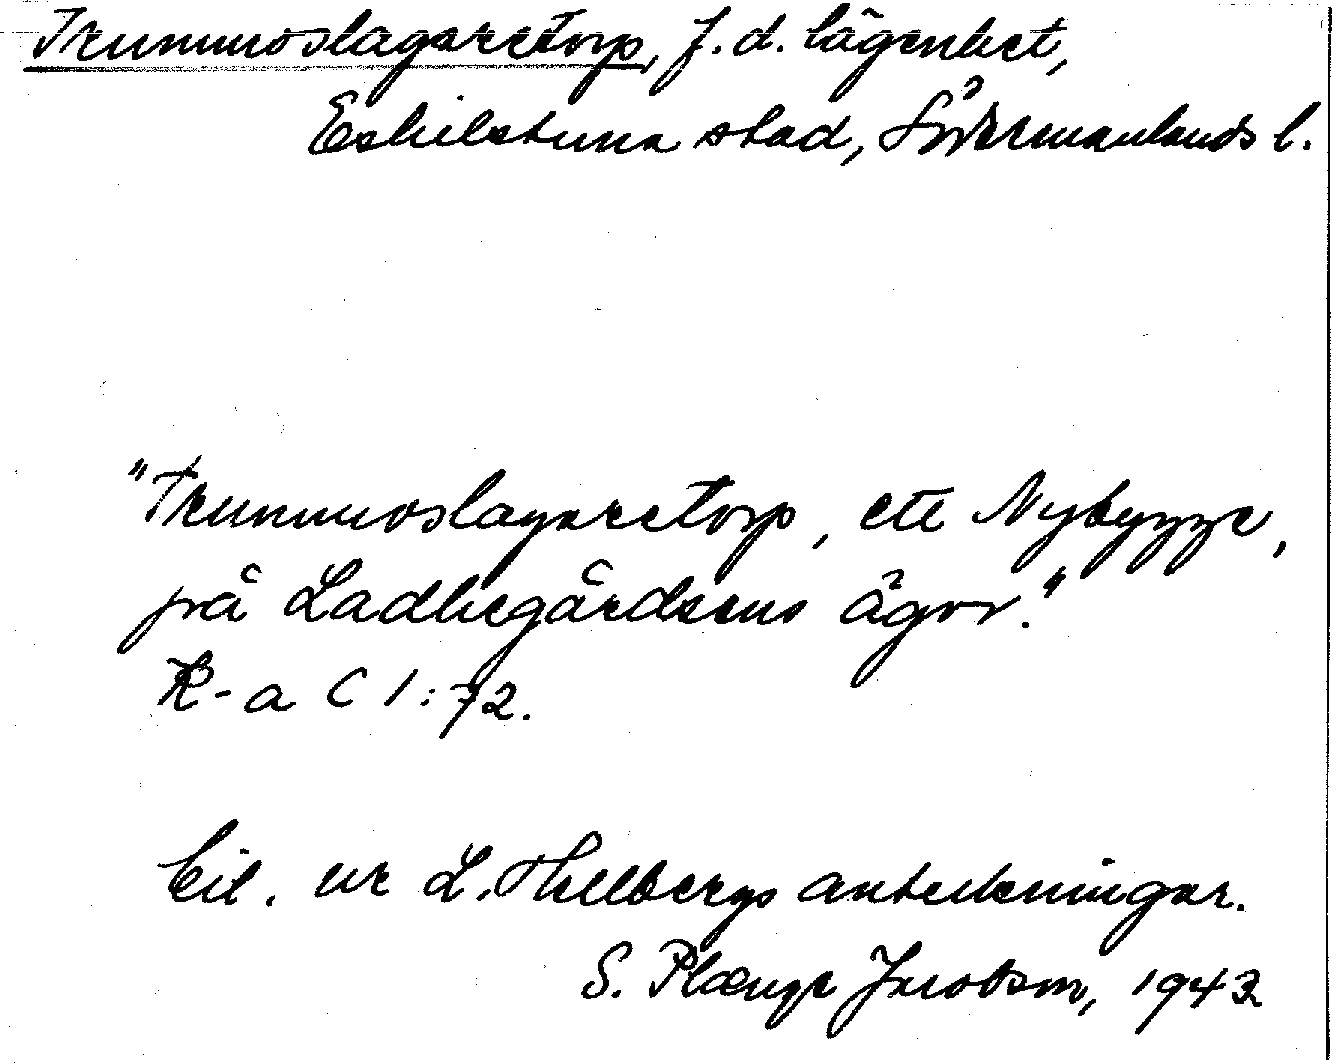 Trummslagaretorp, f.d. lägenhet,
Eskilstuna stad, Södermanlands l.
"Trummoslagaretorp, ett Nybygge,
på Ladhegårdsens ägor."
K-a C 1:72.
Cit. ur L. Hellbergs anteckningar.
S. Plænge Jacobson, 1943